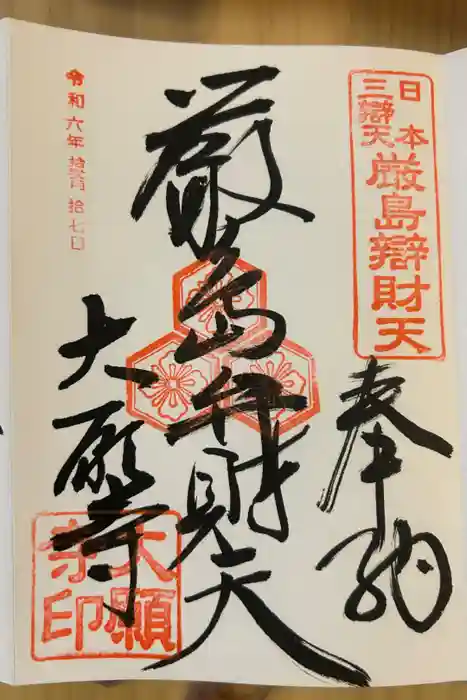 日本
三辯天
厳島辯財天
奉納
厳島弁財天
大願寺
大願
寺印
令和六年拾弐月拾七日